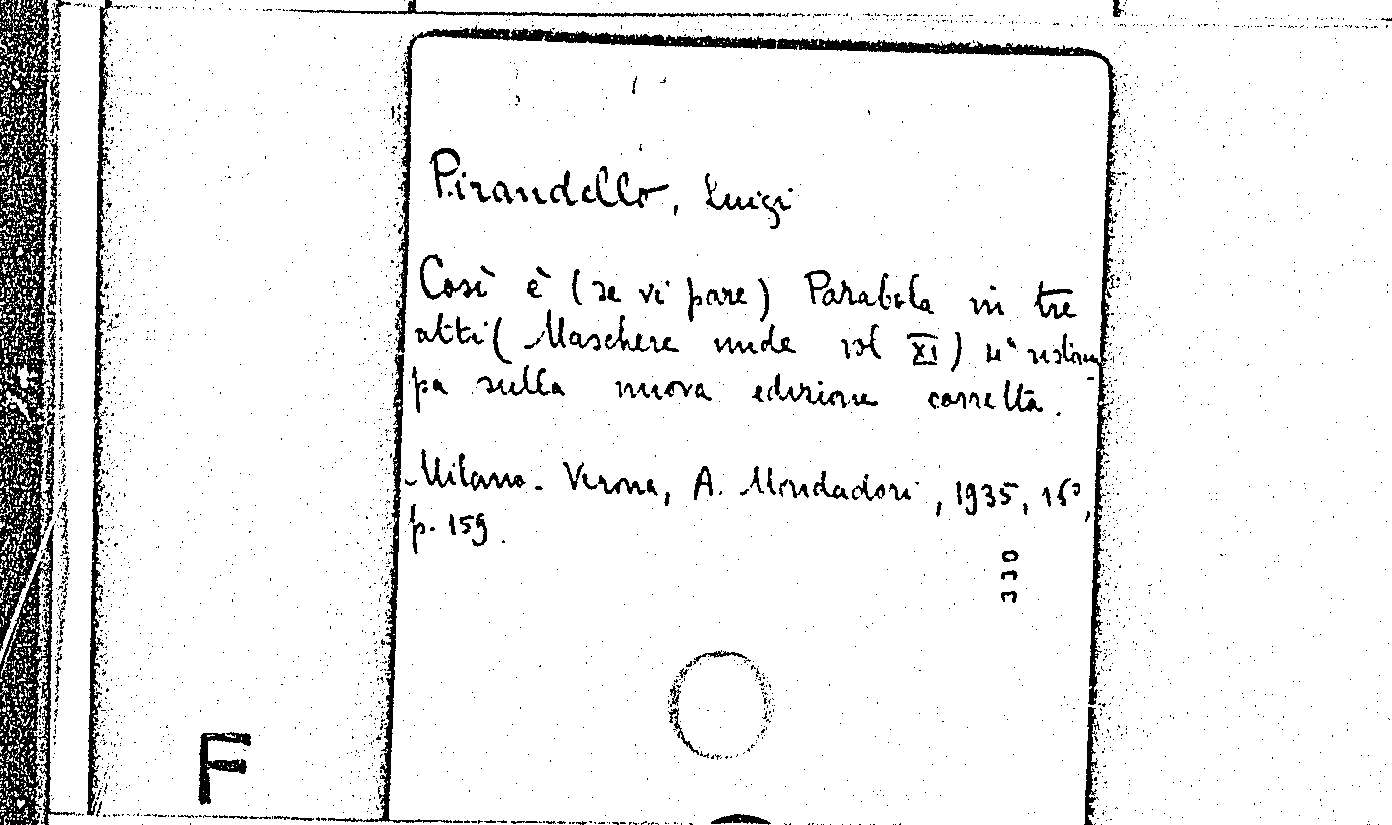 Pirandello, Luigi
Così è (se vi pare) Parabola in tre
atti (Maschere nude vol XI) ristam
pa sulla nuova edizione corretta.
Milano-Verona, A. Mondadori, 1935, 16°,
p. 159.
330
F